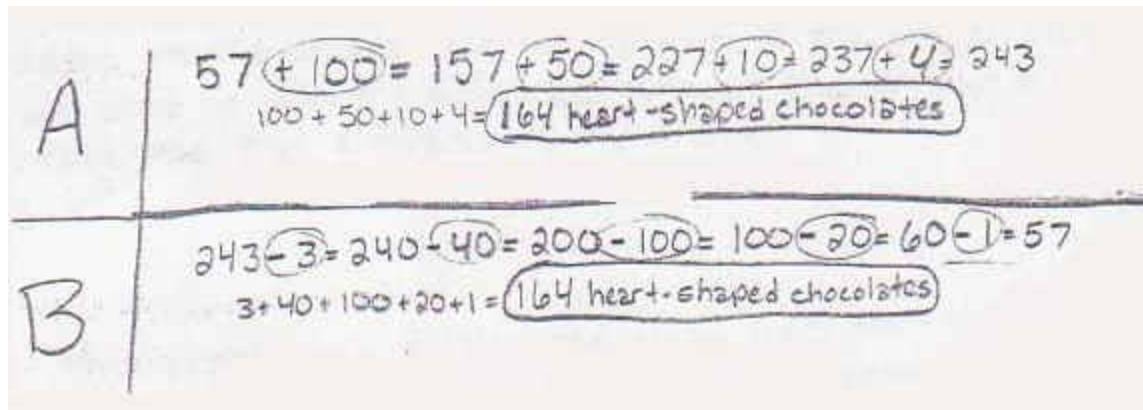 A
57 + 100 = 157 + 50 = 227 + 10 = 237 + 4 = 243
100 + 50 + 10 + 4 = 164 heart-shaped chocolates
B
243 - 3 = 240 - 40 = 200 - 100 = 100 - 20 = 60 - 1 = 57
3 + 40 + 100 + 20 + 1 = 164 heart-shaped chocolates